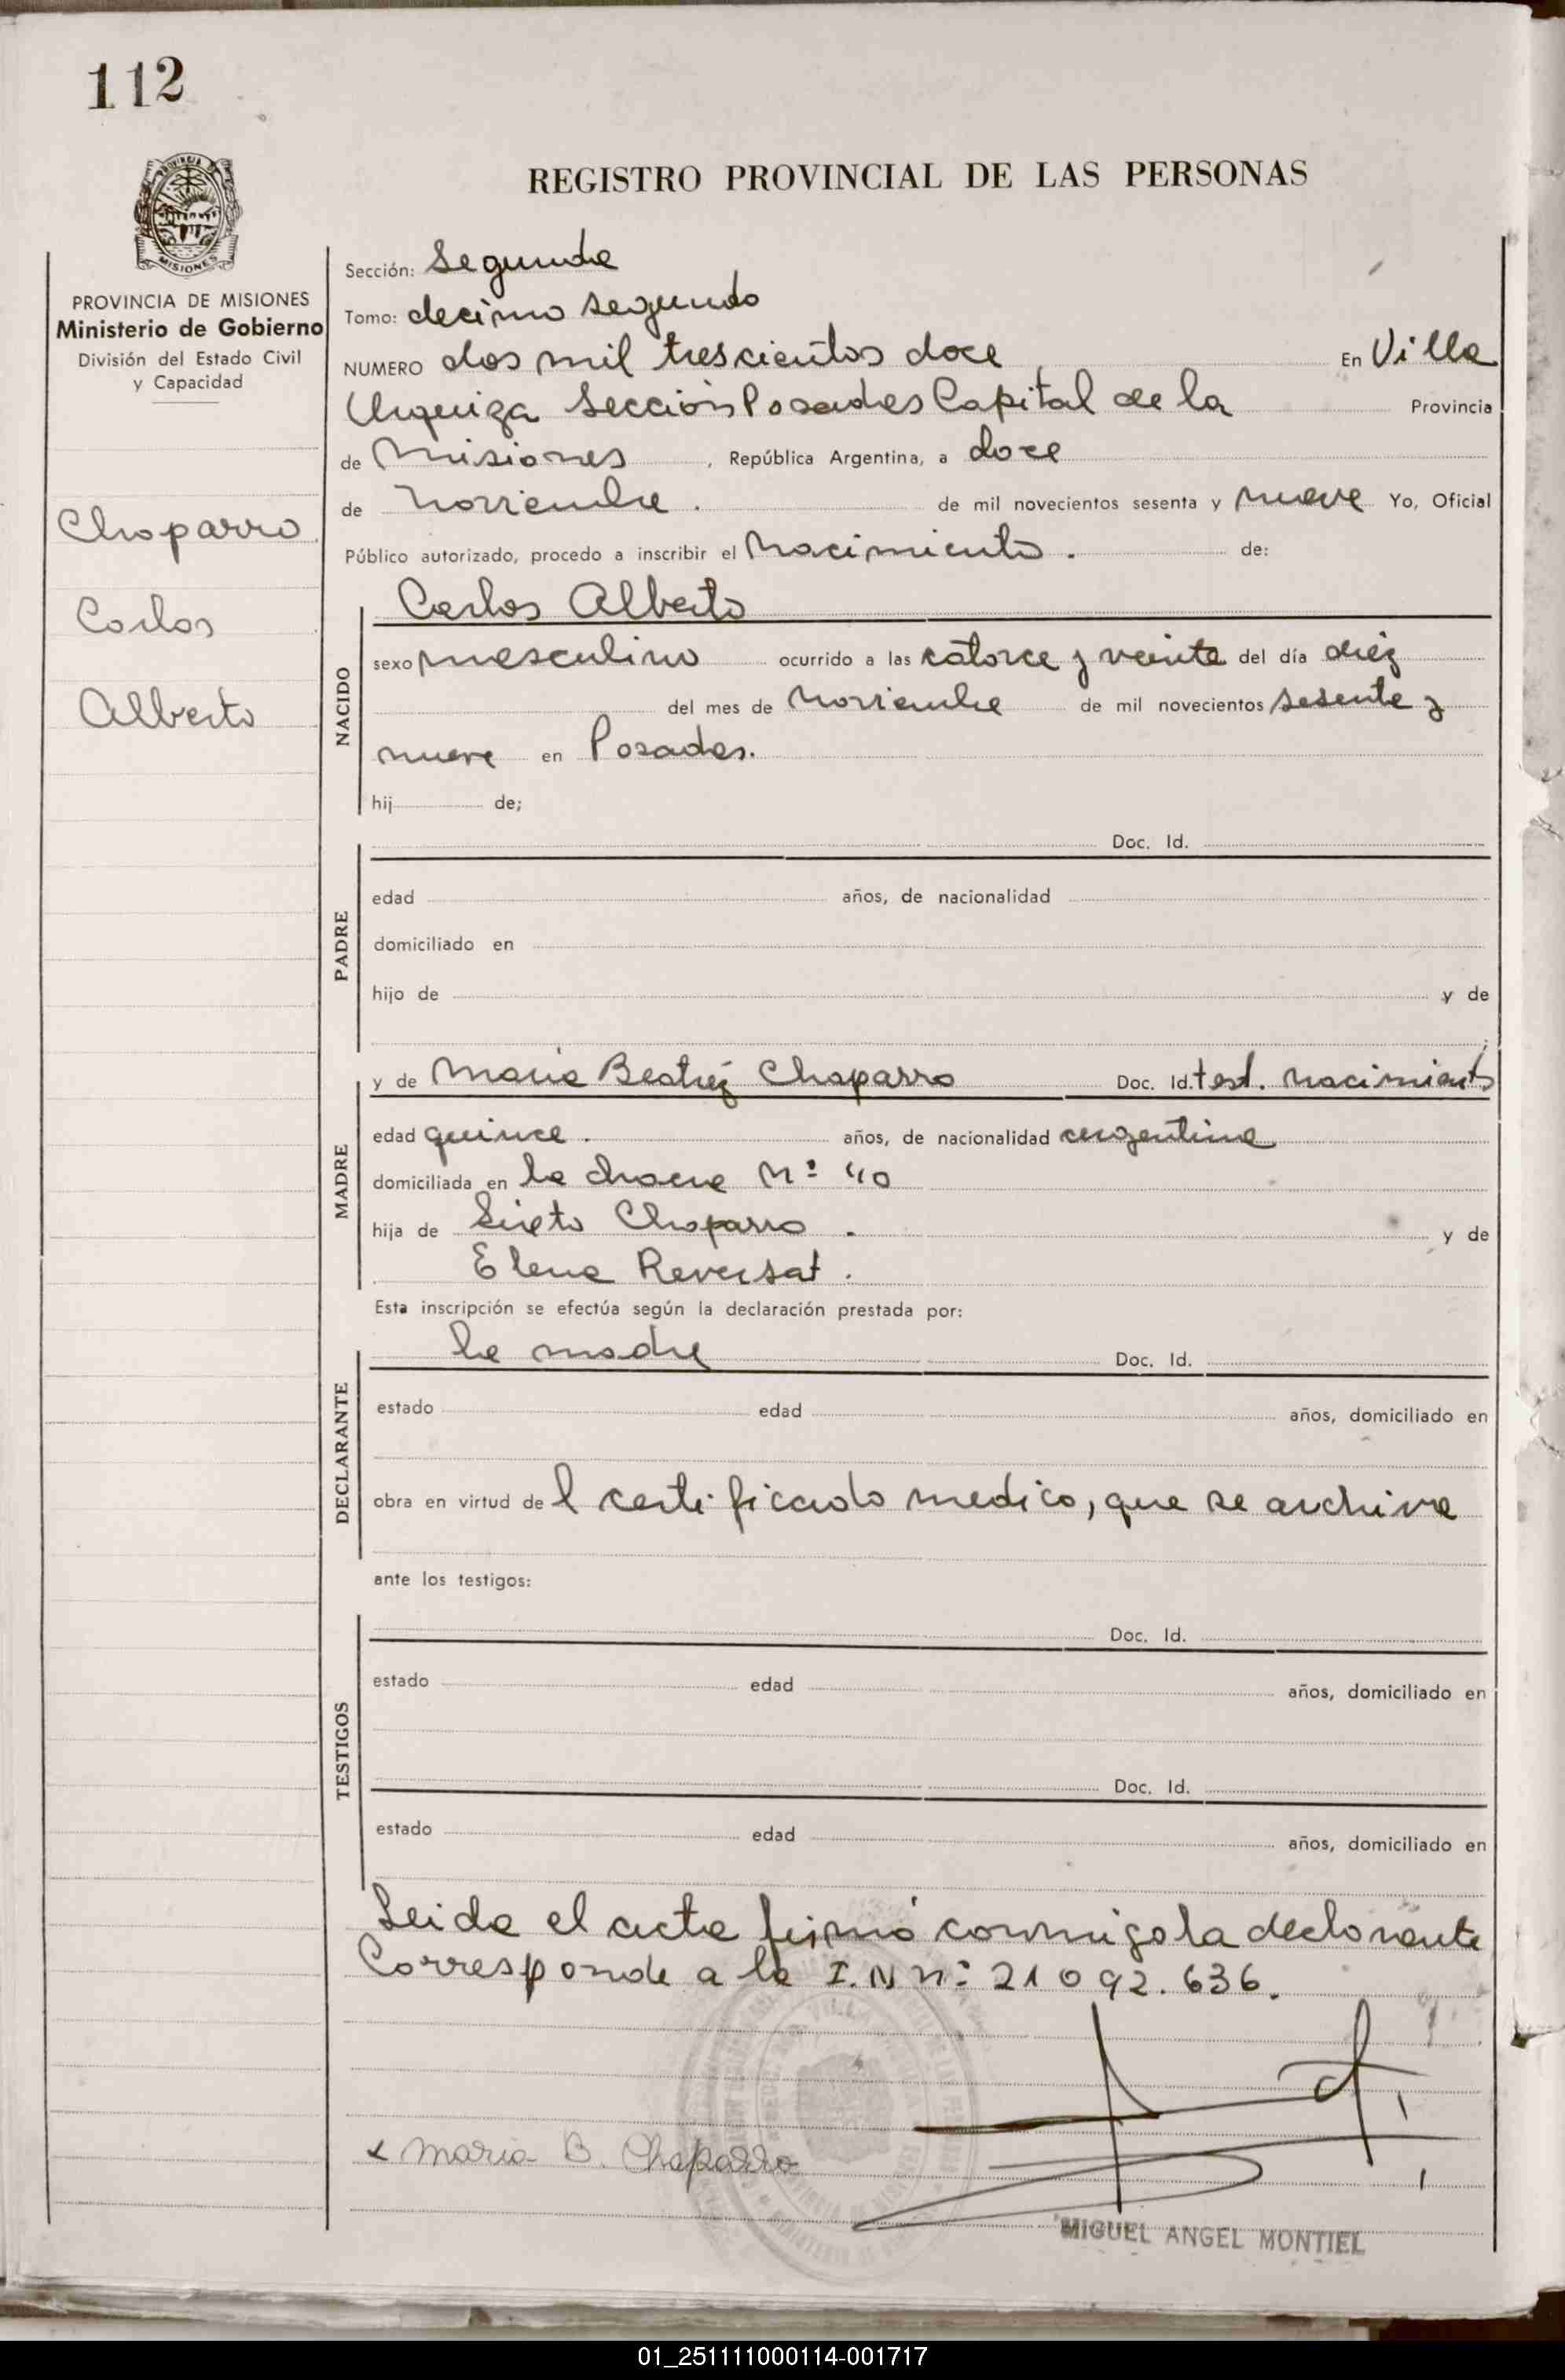 112
PROVINCIA DE MISIONES
Ministerio de Gobierno
División del Estado Civil
y Capacidad
Chaparro
Carlos
Alberto
REGISTRO PROVINCIAL DE LAS PERSONAS
Sección: Segunda
Tomo: decimo segundo
NUMERO dos mil trescientos doce En Villa
Urquiza Sección Posadas Capital de la Provincia
de Misiones, República Argentina, a doce
de noviembre. de mil novecientos sesenta y nueve Yo, Oficial
Público autorizado, procedo a inscribir el Nacimiento. de:
NACIDO
Carlos Alberto
sexo masculino ocurrido a las catorce y veinte del día diez
del mes de noviembre de mil novecientos sesenta y
nueve en Posadas.
hij de;
PADRE
Doc. Id.
edad años, de nacionalidad
domiciliado en
hijo de y de
MADRE
y de Maria Beatriz Chaparro Doc. Id. test. nacimiento
edad quince. años, de nacionalidad argentina
domiciliada en la chacra Nº 40
hija de Chaparro. y de
Elena Reversat.
Esta inscripción se efectúa según la declaración prestada por:
DECLARANTE
la madre Doc. Id.
estado edad años, domiciliado en
obra en virtud del certificado medico, que se archiva
ante los testigos:
TESTIGOS
Doc. Id.
estado edad años, domiciliado en
Doc. Id.
estado edad años, domiciliado en
Leida el acta firmó conmigo la declarante
Corresponde a la I.N nº 21 092.636.
x Maria B. Chaparro
MIGUEL ANGEL MONTIEL
01_251111000114-001717